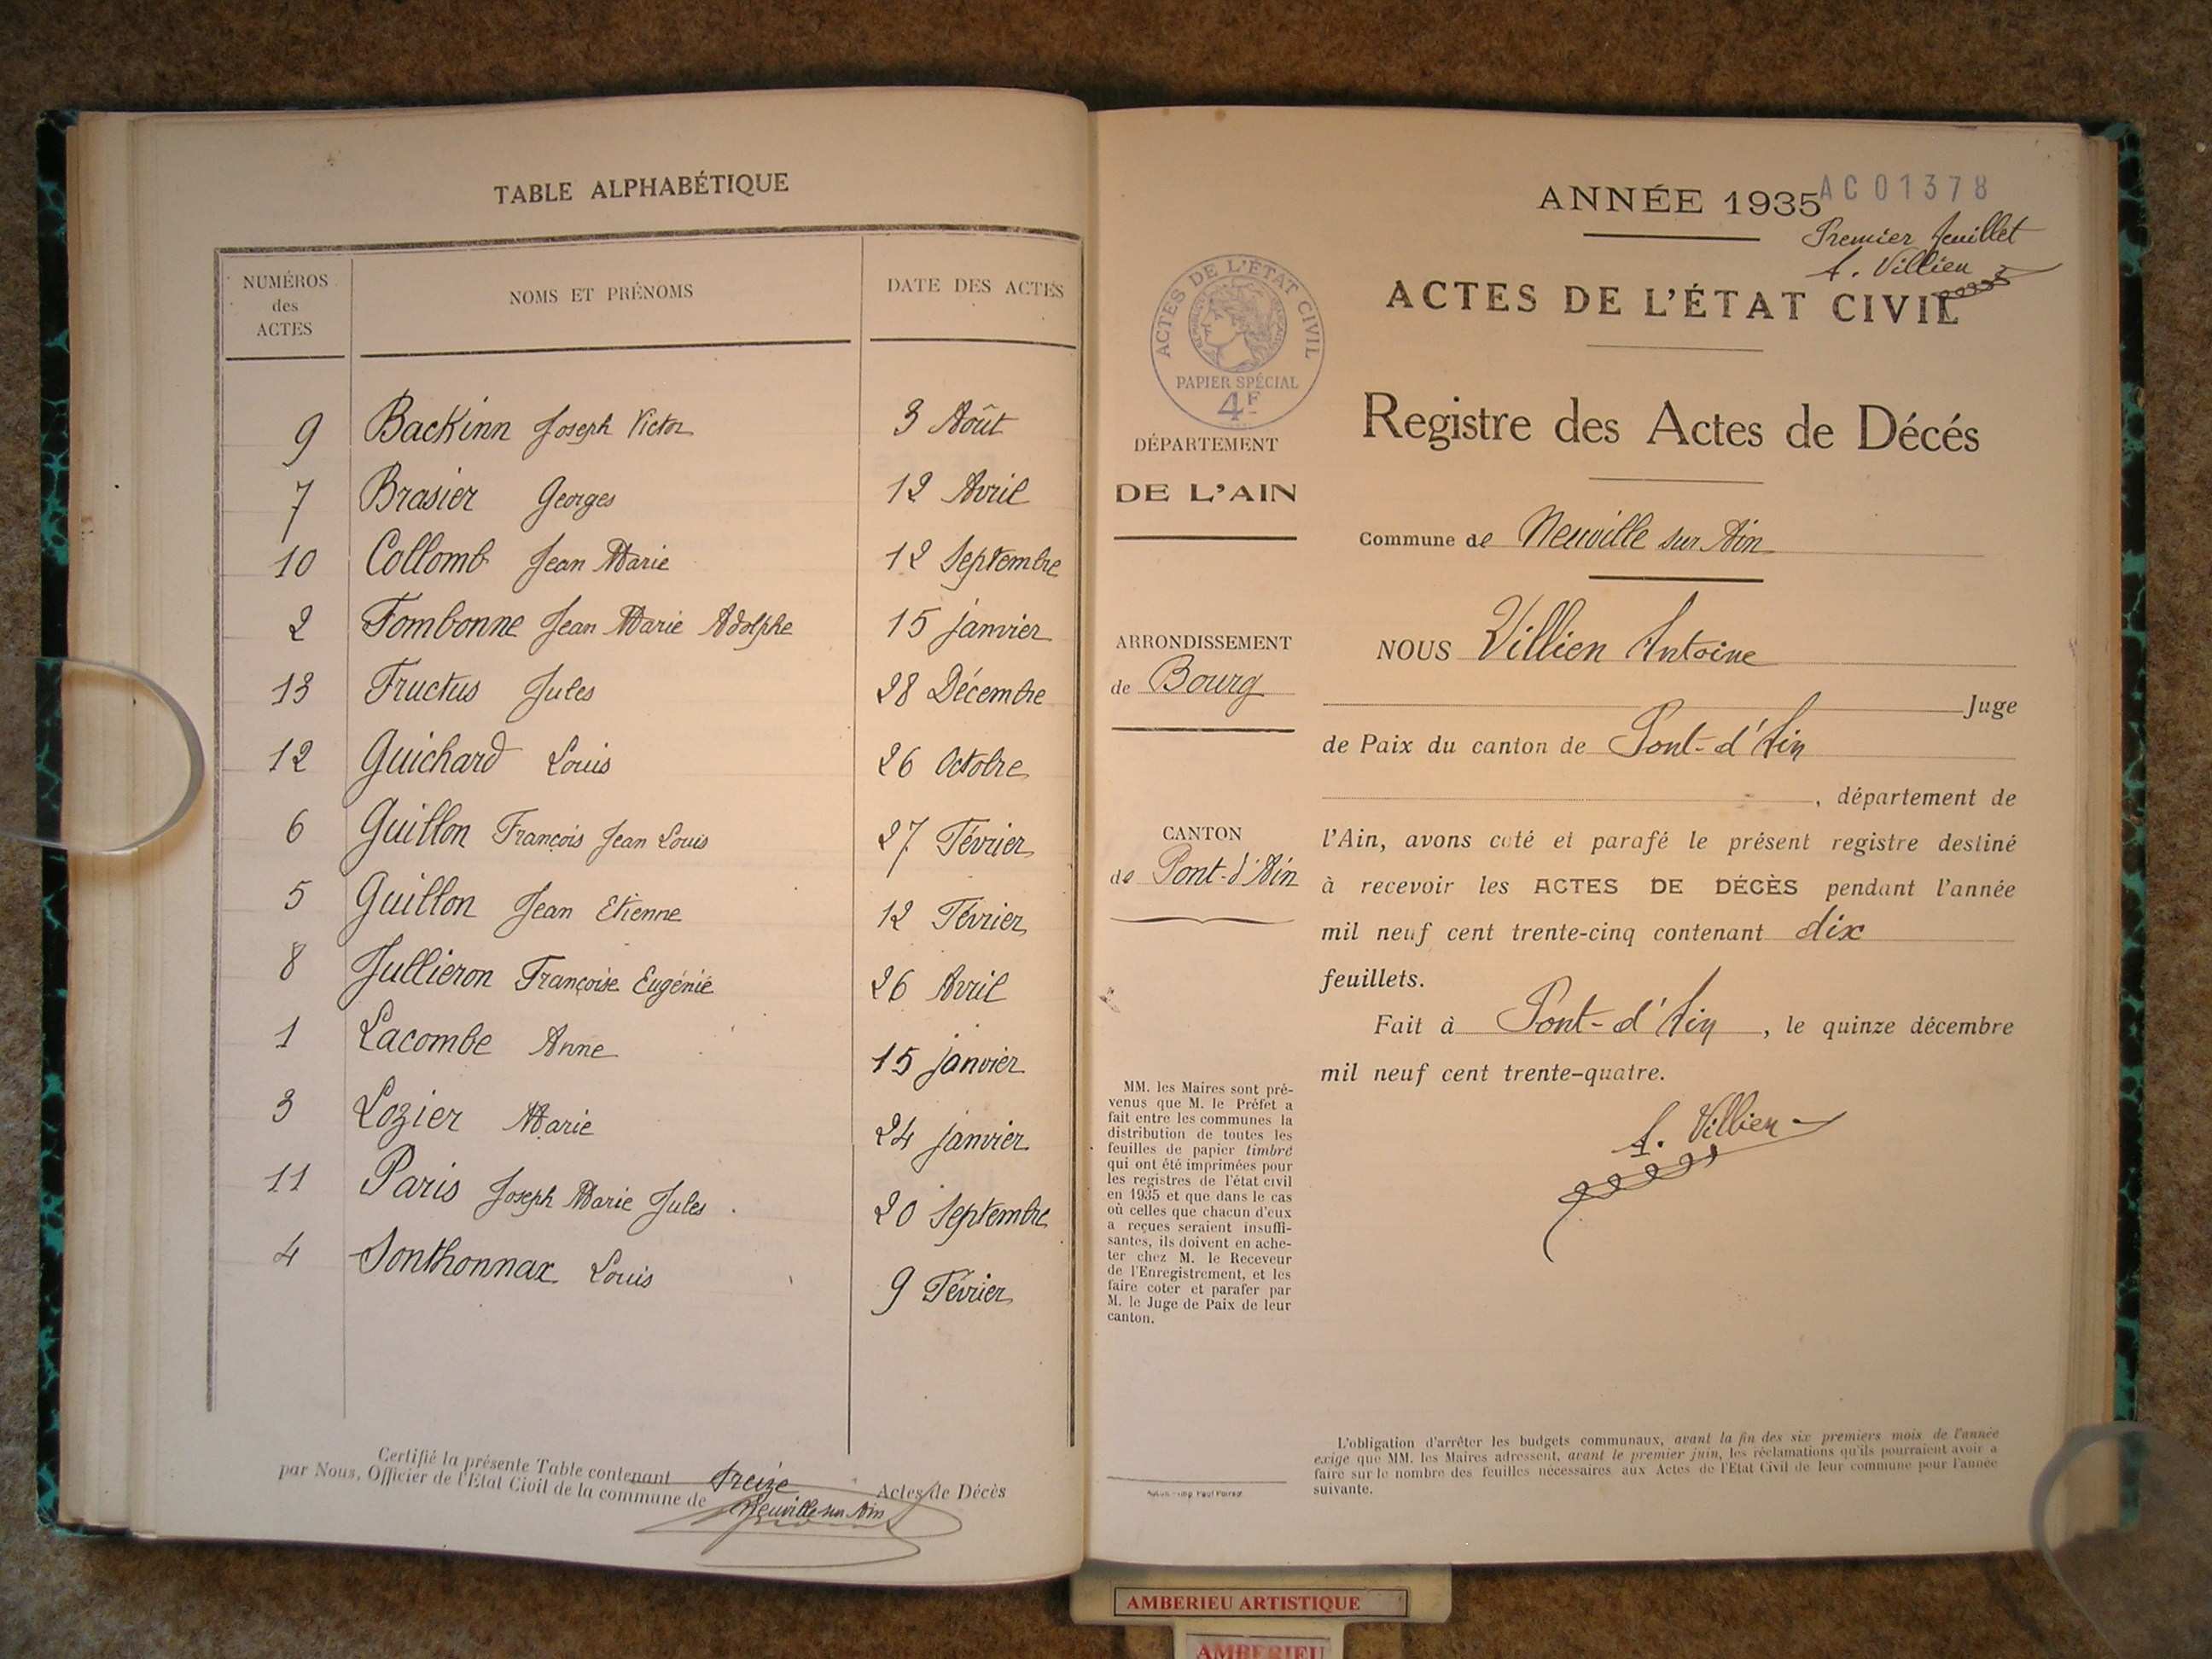 TABLE ALPHABÉTIQUE
NUMÉROS des ACTES NOMS ET PRÉNOMS DATE DES ACTES
9 Backinn Joseph Victor 3 Août
7 Brasier Georges 12 Avril
10 Collomb Jean Marie 12 Septembre
2 Fombonne Jean Marie Adolphe 15 janvier
13 Fructus Jules 28 Décembre
12 Guichard Louis 26 Octobre
6 Guillon François Jean Louis 27 Février
5 Guillon Jean Etienne 12 Février
8 Jullieron Françoise Eugénie 26 Avril
1 Lacombe Anne 15 janvier
3 Lozier Marie 24 janvier
11 Paris Joseph Marie Jules 20 Septembre
4 Sonthonnax Louis 9 Février
Certifié la présente Table contenant Treize Actes de Décès
par Nous, Officier de l'Etat Civil de la commune de Neuville sur Ain
ANNÉE 1935
AC01378
Premier feuillet
A. Villien
ACTES DE L'ÉTAT CIVIL
ACTES DE L'ÉTAT CIVIL
RÉPUBLIQUE FRANÇAISE
PAPIER SPÉCIAL
4F
DÉPARTEMENT
DE L'AIN
ARRONDISSEMENT
de Bourg
CANTON
de Pont-d'Ain
MM. les Maires sont pré-
venus que M. le Préfet a
fait entre les communes la
distribution de toutes les
feuilles de papier timbré
qui ont été imprimées pour
les registres de l'état civil
en 1935 et que dans le cas
où celles que chacun d'eux
a reçues seraient insuffi-
santes, ils doivent en ache-
ter chez M. le Receveur
de l'Enregistrement, et les
faire coter et parafer par
M. le Juge de Paix de leur
canton.
Registre des Actes de Décés
Commune de Neuville sur Ain
NOUS Villien Antoine
Juge
de Paix du canton de Pont-d'Ain
, département de
l'Ain, avons coté et parafé le présent registre destiné
à recevoir les ACTES DE DÉCÈS pendant l'année
mil neuf cent trente-cinq contenant dix
feuillets.
Fait à Pont-d'Ain, le quinze décembre
mil neuf cent trente-quatre.
A. Villien
L'obligation d'arrêter les budgets communaux, avant la fin des six premiers mois de l'année
exige que MM. les Maires adressent, avant le premier juin, les réclamations qu'ils pourraient avoir a
faire sur le nombre des feuilles nécessaires aux Actes de l'Etat Civil de leur commune pour l'année
suivante.
AMBERIEU ARTISTIQUE
AMBERIEU